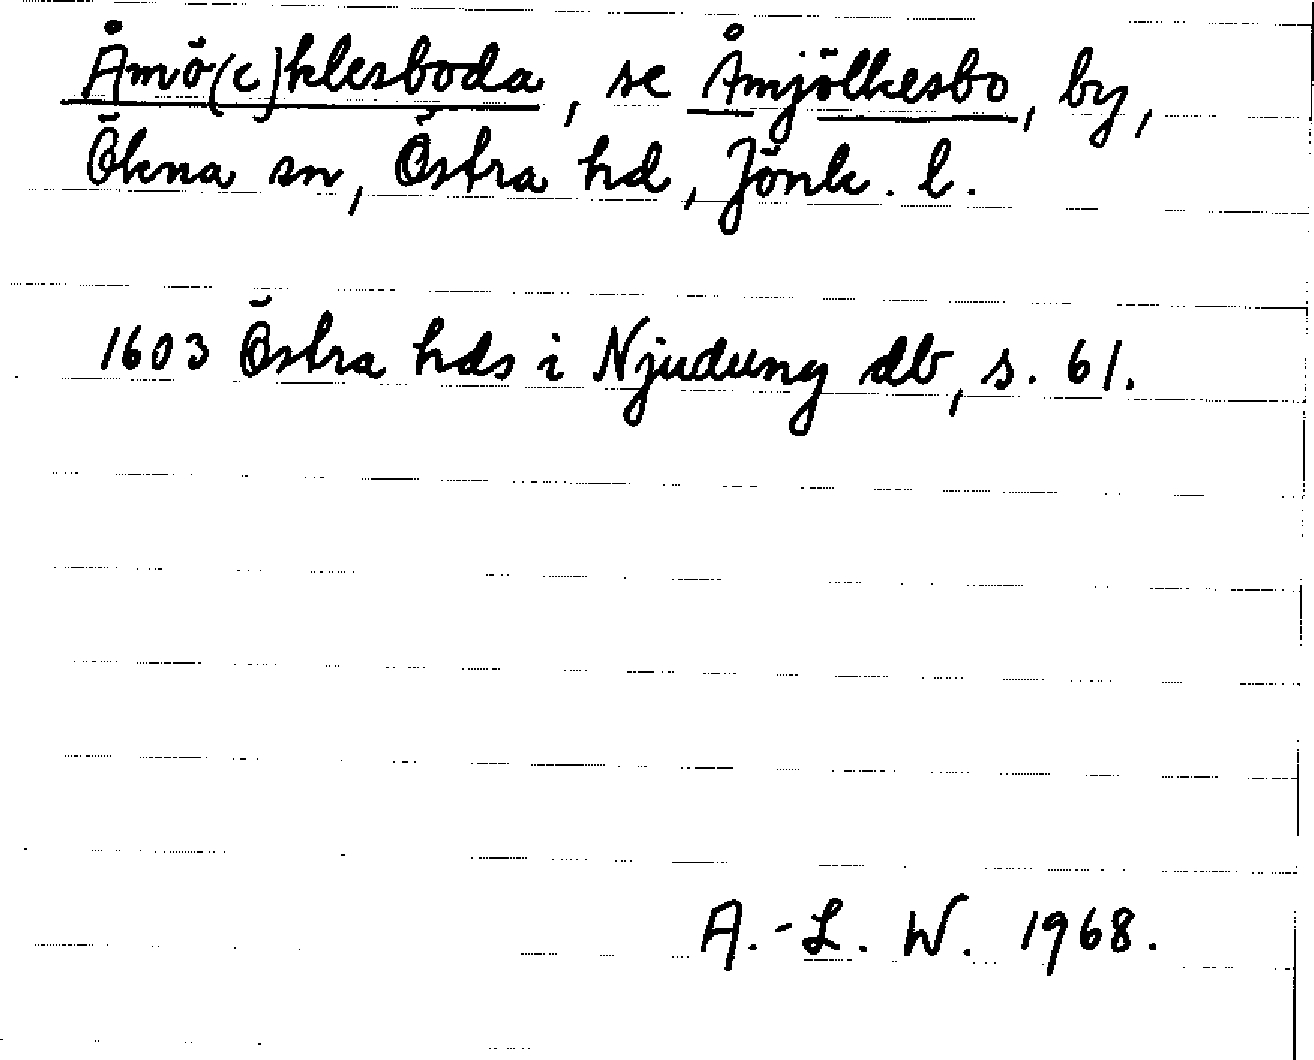 Åmö(c)klesboda, se Åmjölkesbo, by,
Ökna sn, Östra hd, Jönk. l.
1603 Östra hds i Njudung db, s. 61.
A.-L. W. 1968.